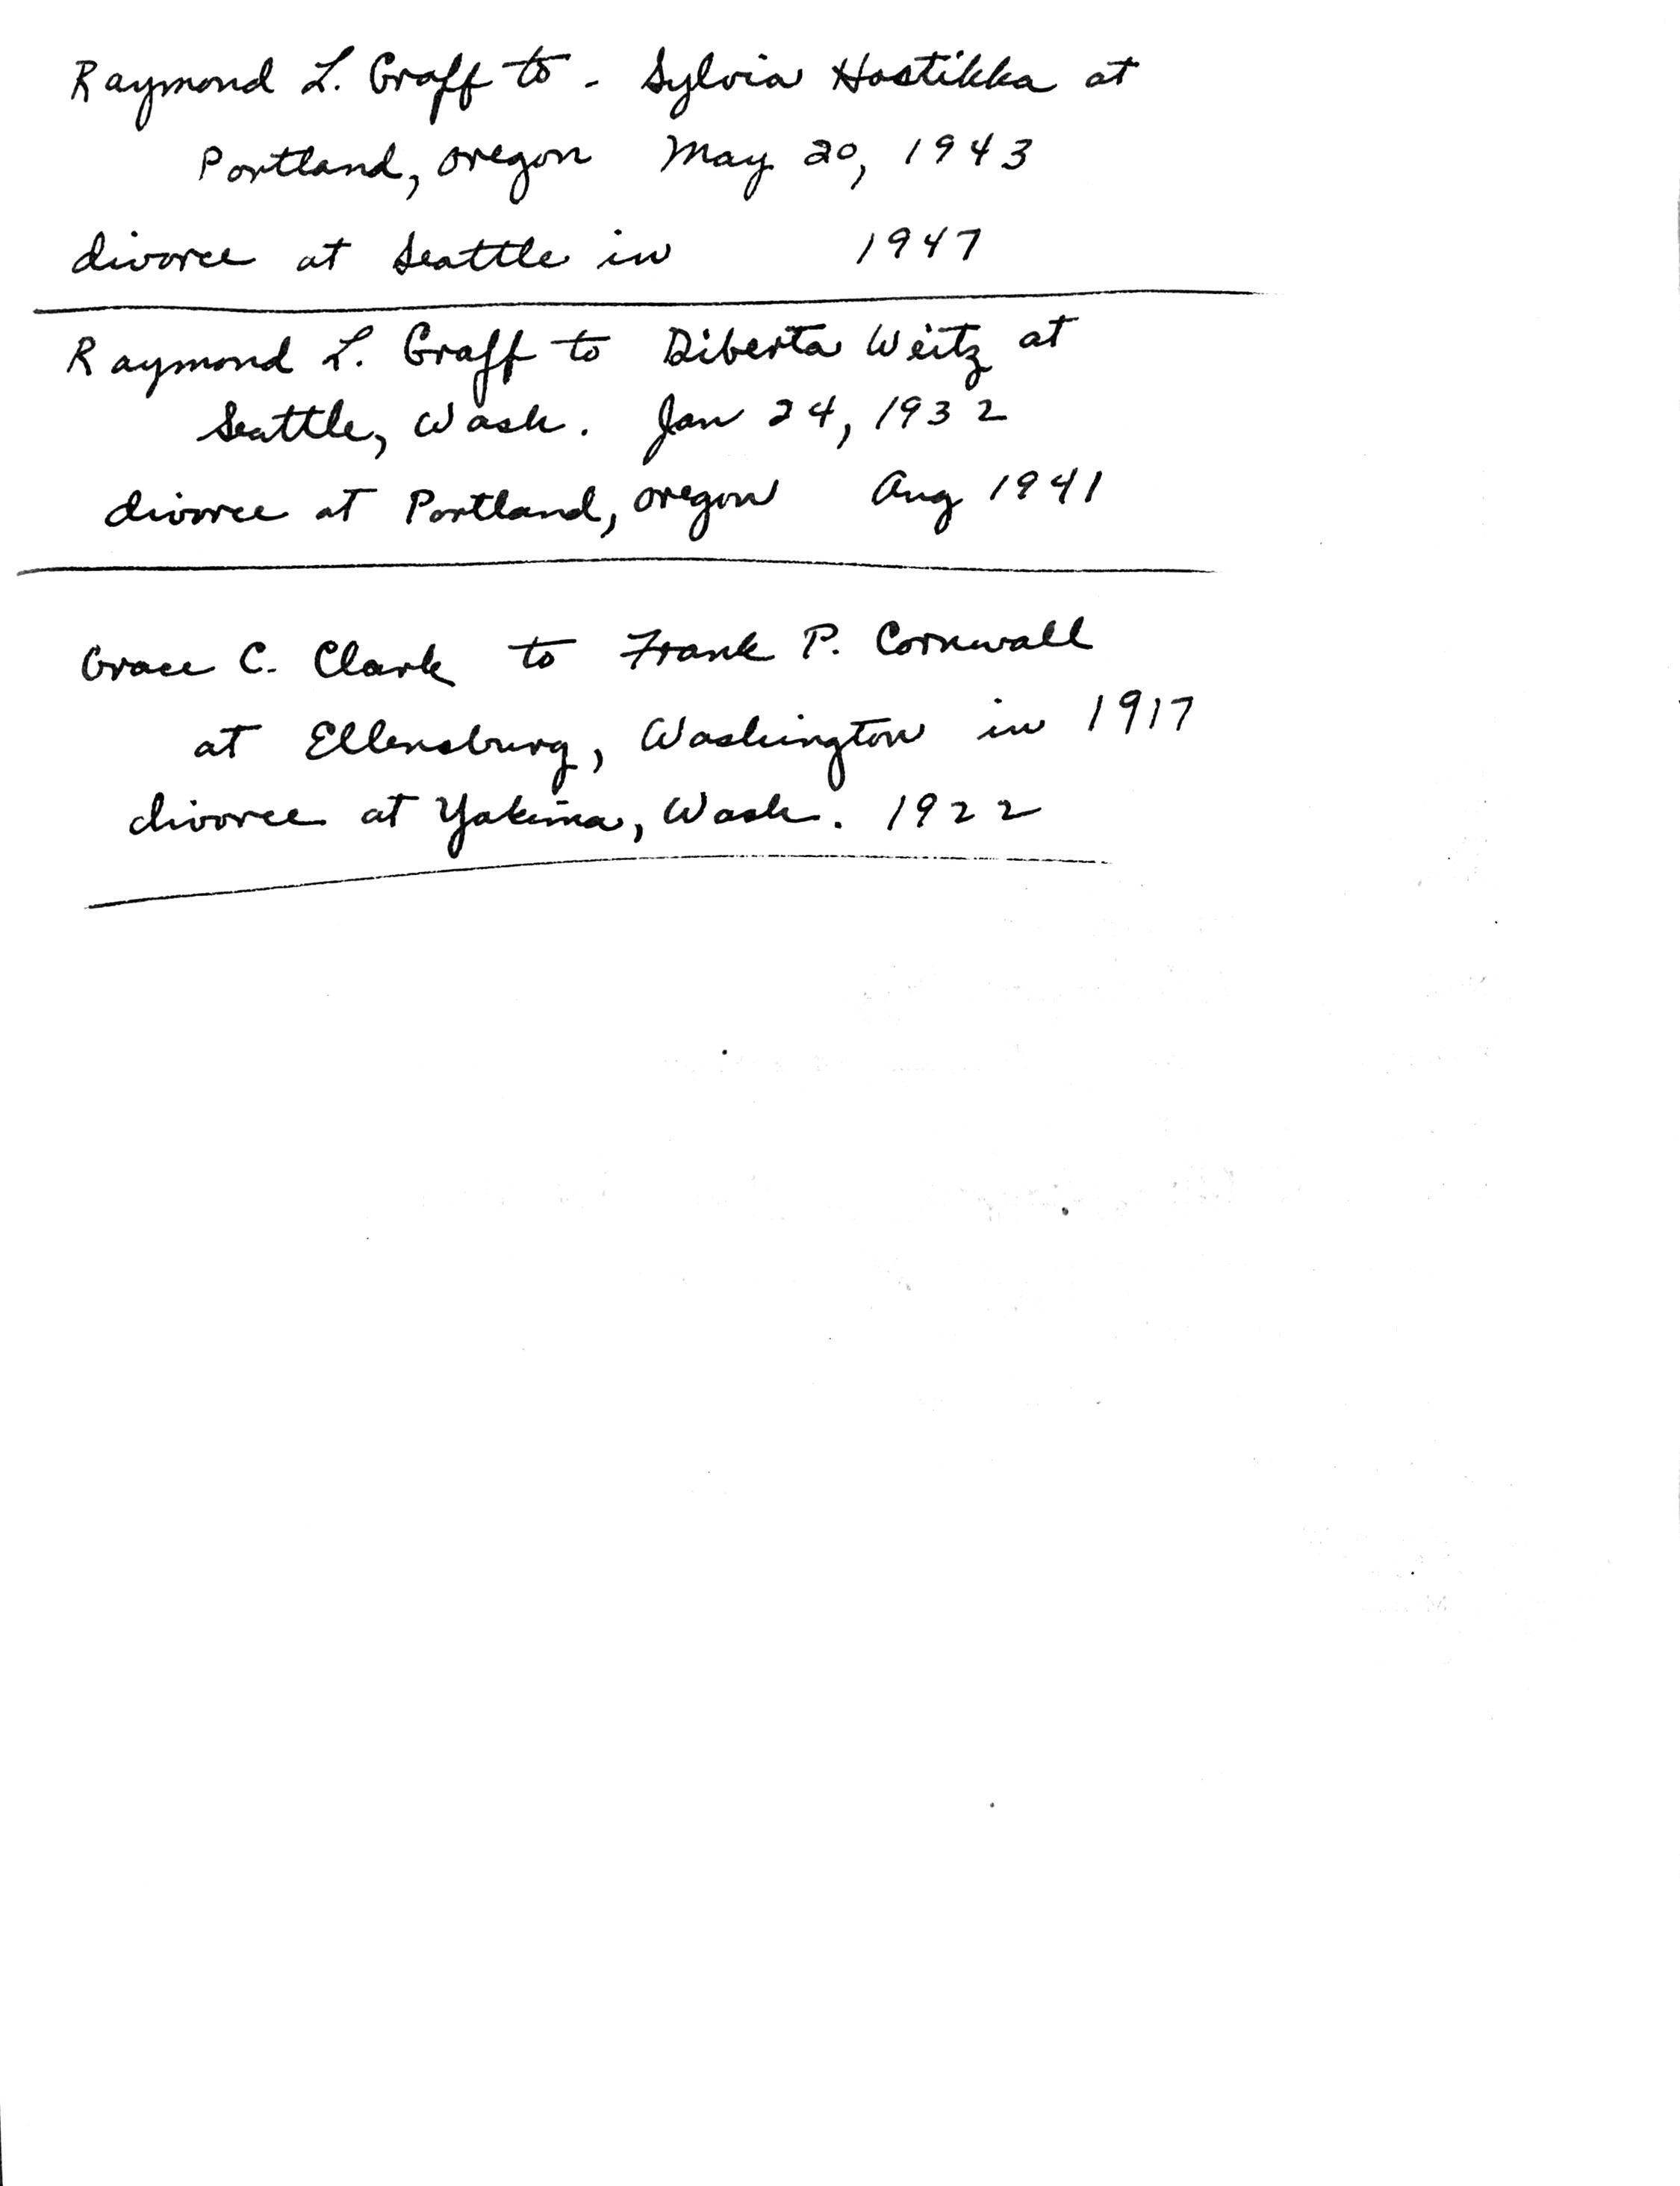 Raymond L. Graff to - Sylvia Hostikka at
Portland, Oregon May 20, 1943
divorce at Seattle in 1947
Raymond L. Graff to Diberta Weitz at
Seattle, Wash. Jan 24, 1932
divorce at Portland, Oregon Aug 1941
Grace C. Clark to Frank P. Cornwall
at Ellensburg, Washington in 1917
divorce at Yakima, Wash. 1922